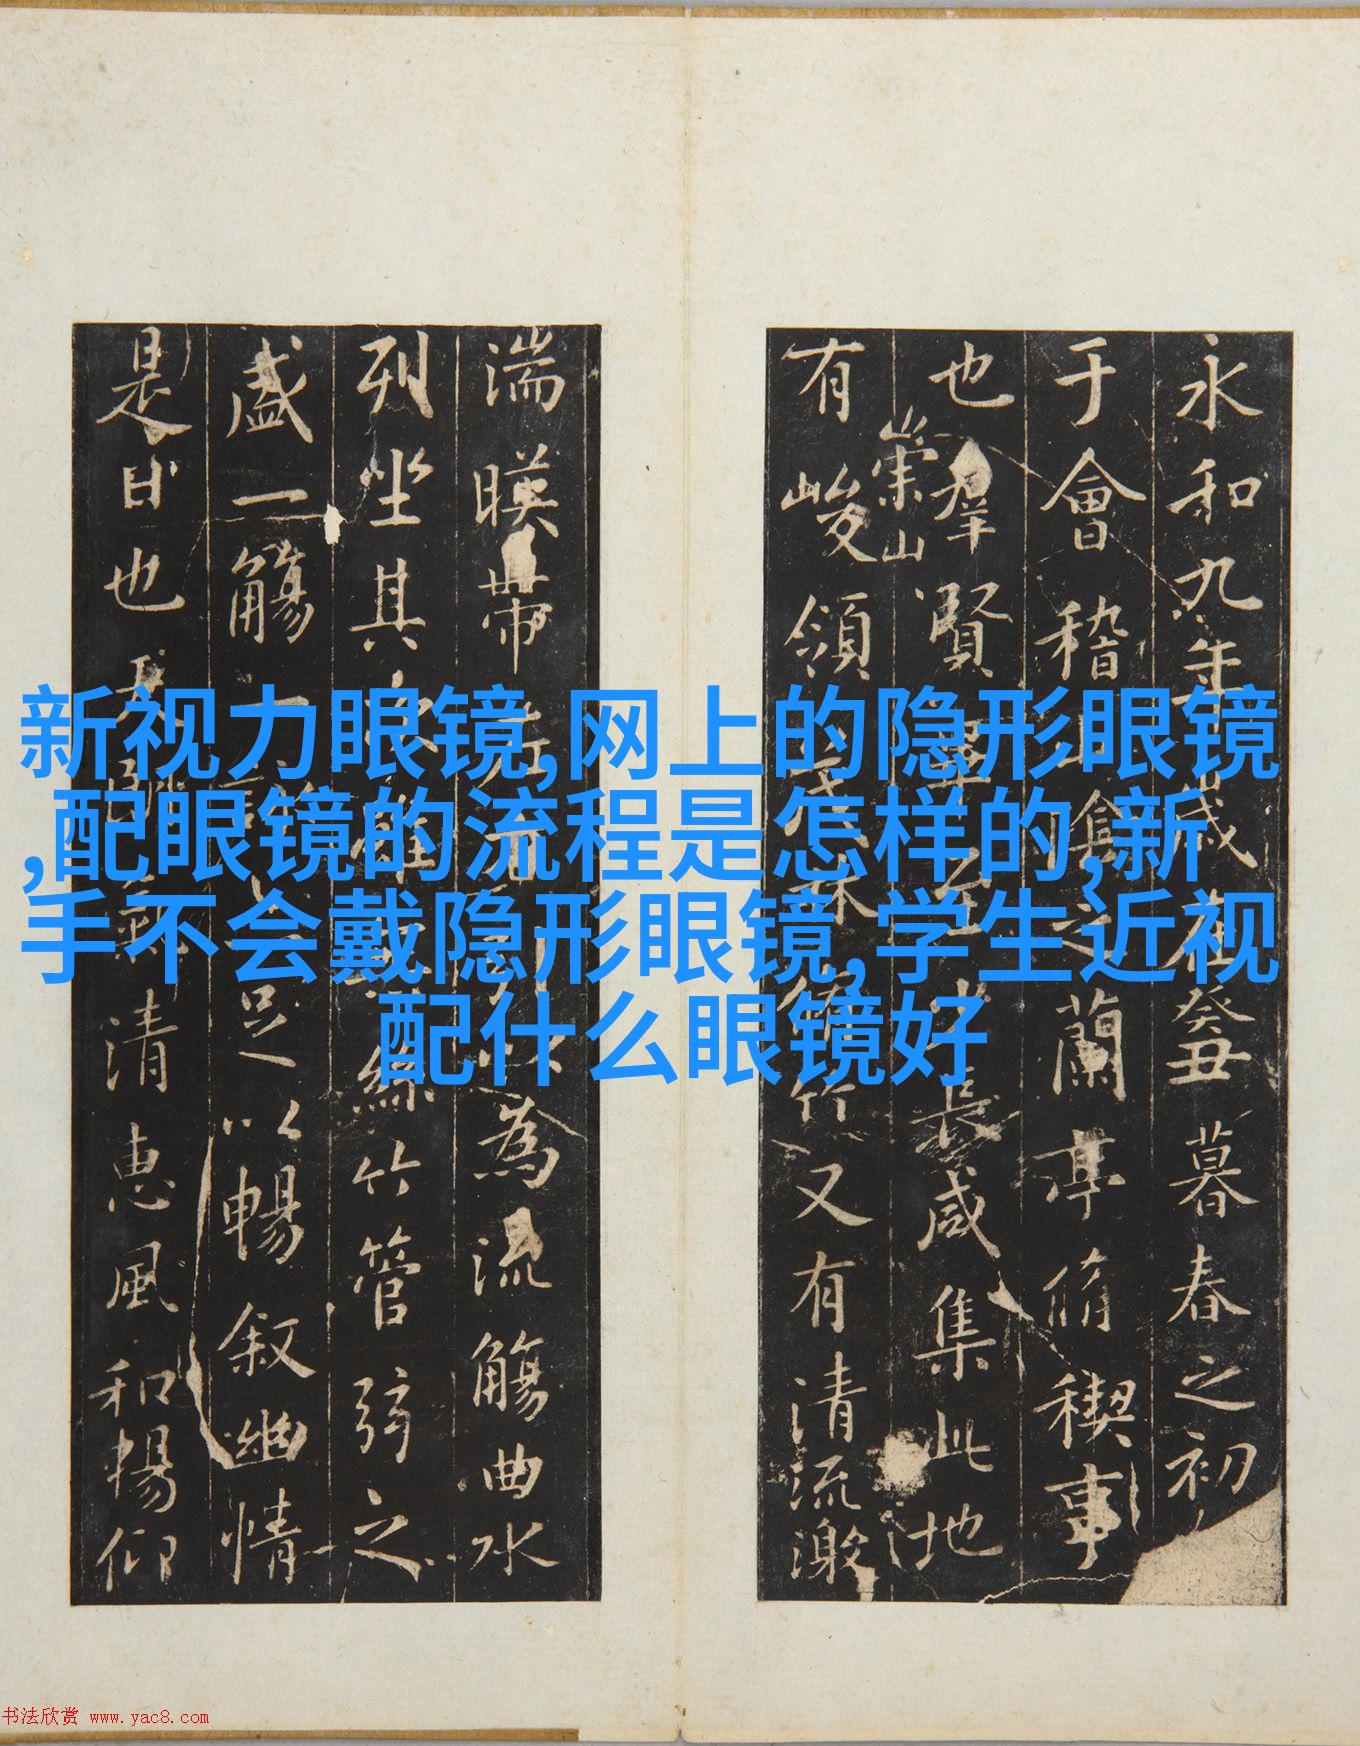 新视力眼镜,网上的隐形眼镜
,配眼镜的流程是怎样的,新
手不会戴隐形眼镜,学生近视
配什么眼镜好
永和九年歲在癸丑暮春之初
于會稽山陰之蘭亭脩禊事
也羣賢畢至少長咸集此地
崇山
有峻領茂林脩竹又有清流激
湍暎帶左右引以為流觴曲水
列坐其次雖無絲竹管弦之
盛一觴一詠亦足以暢敘幽情
是日也天朗氣清惠風和暢仰
书法欣赏 www.yac8.com